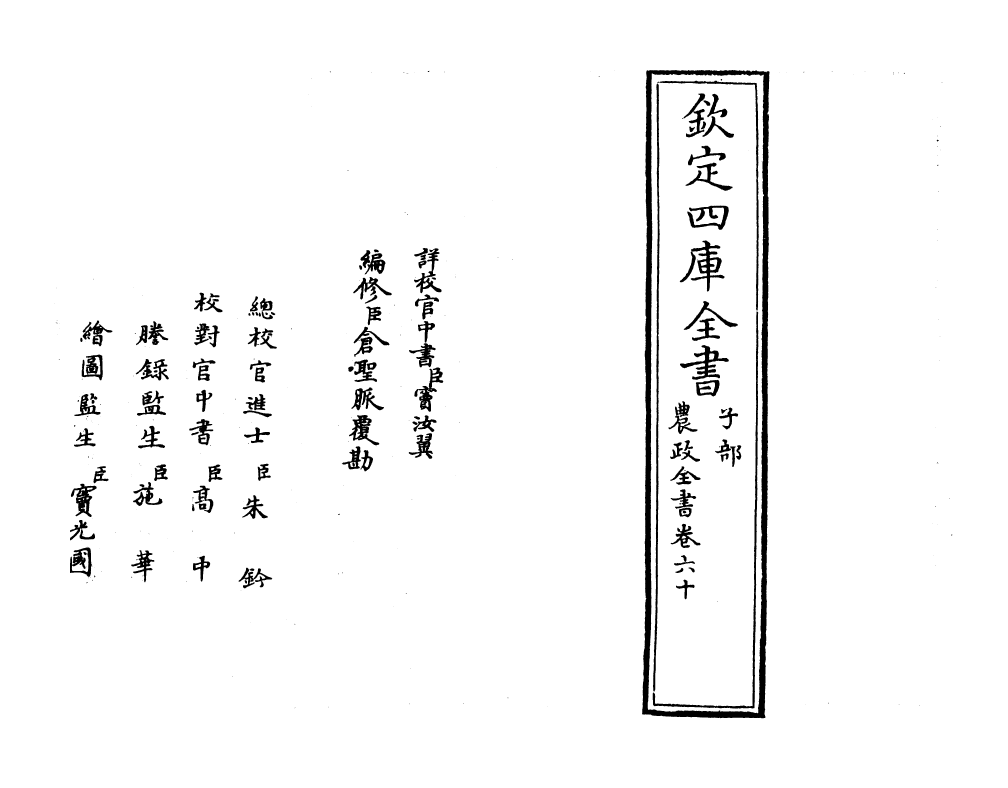 欽定四庫全書
子部
農政全書卷六十
詳校官中書臣竇汝翼
編修臣倉聖脈覆勘
總校官進士臣朱鈐
校對官中書臣高中
謄錄監生臣施華
繪圖監生臣竇光國